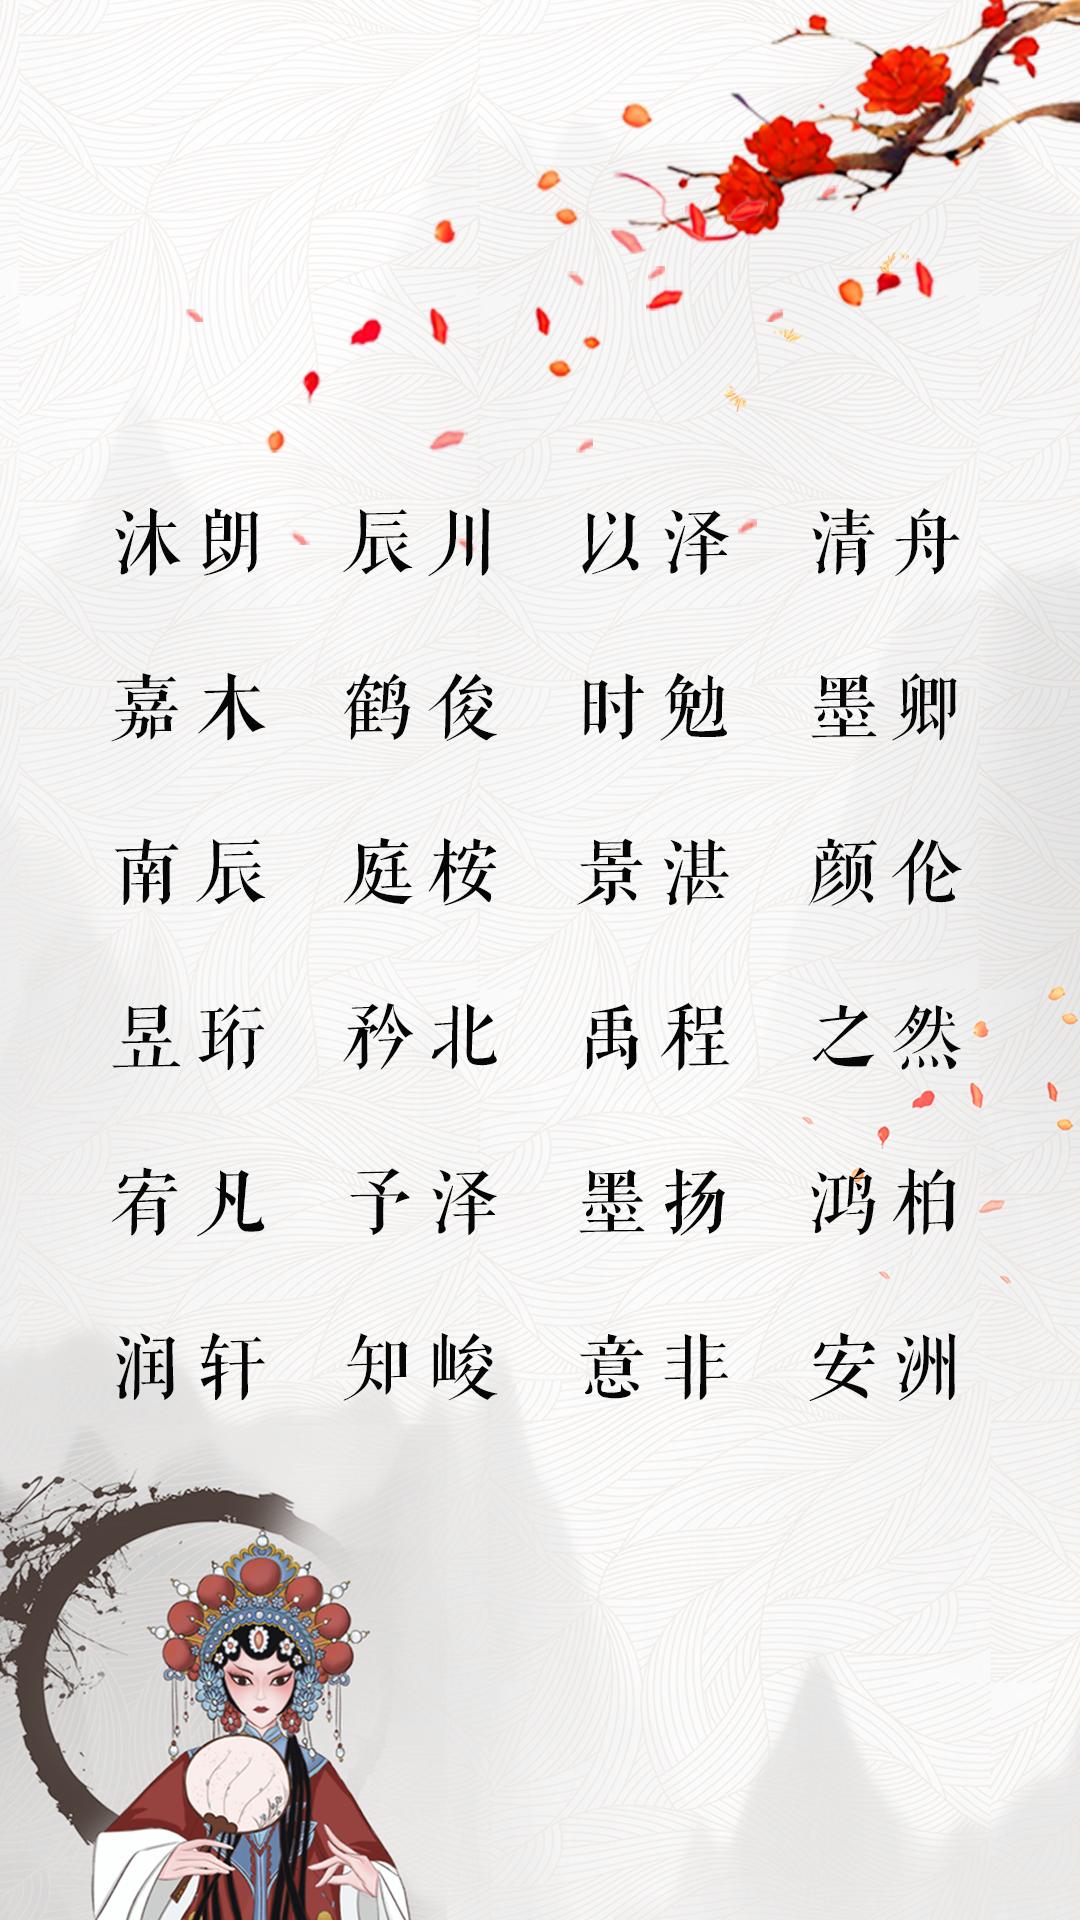 沐朗 辰川 以泽 清舟
嘉木 鹤俊 时勉 墨卿
南辰 庭桉 景湛 颜伦
昱珩 矜北 禹程 之然
宥凡 予泽 墨扬 鸿柏
润轩 知峻 意非 安洲